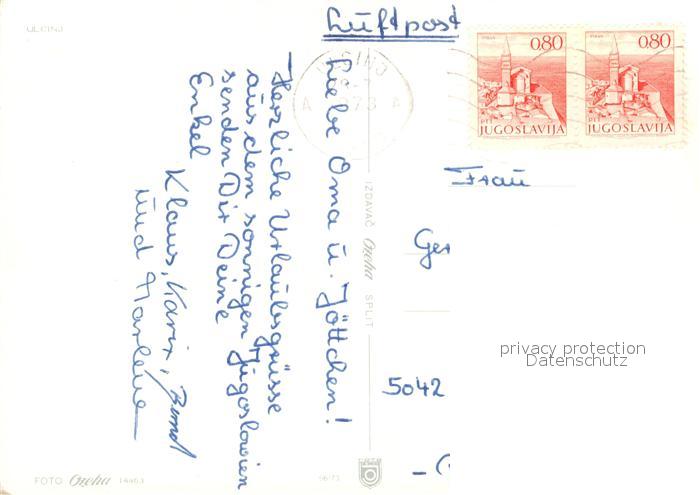 ULCINJ
Luftpost
0,80
PIRAN
PTT
JUGOSLAVIJA
0,80
PIRAN
PTT
JUGOSLAVIJA
Liebe Oma u. Jöttchen!
Herzliche Urlaubsgrüsse
aus dem sonnigen Jugoslawien
senden Dir Deine
Enkel
Klaus, Karin, Bernd
und Marlene
IZDAVAČ Ozeha SPLIT
Frau
Ger
5042
privacy protection
Datenschutz
FOTO Ozeha 14463